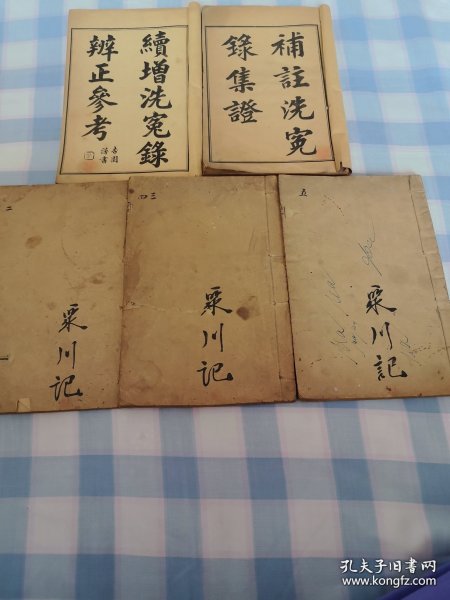 補註洗冤
錄集證
續增洗冤錄
辨正參考
二
粟川記
三
四
粟川記
五
粟川記
孔夫子旧书网
www.kongfz.com